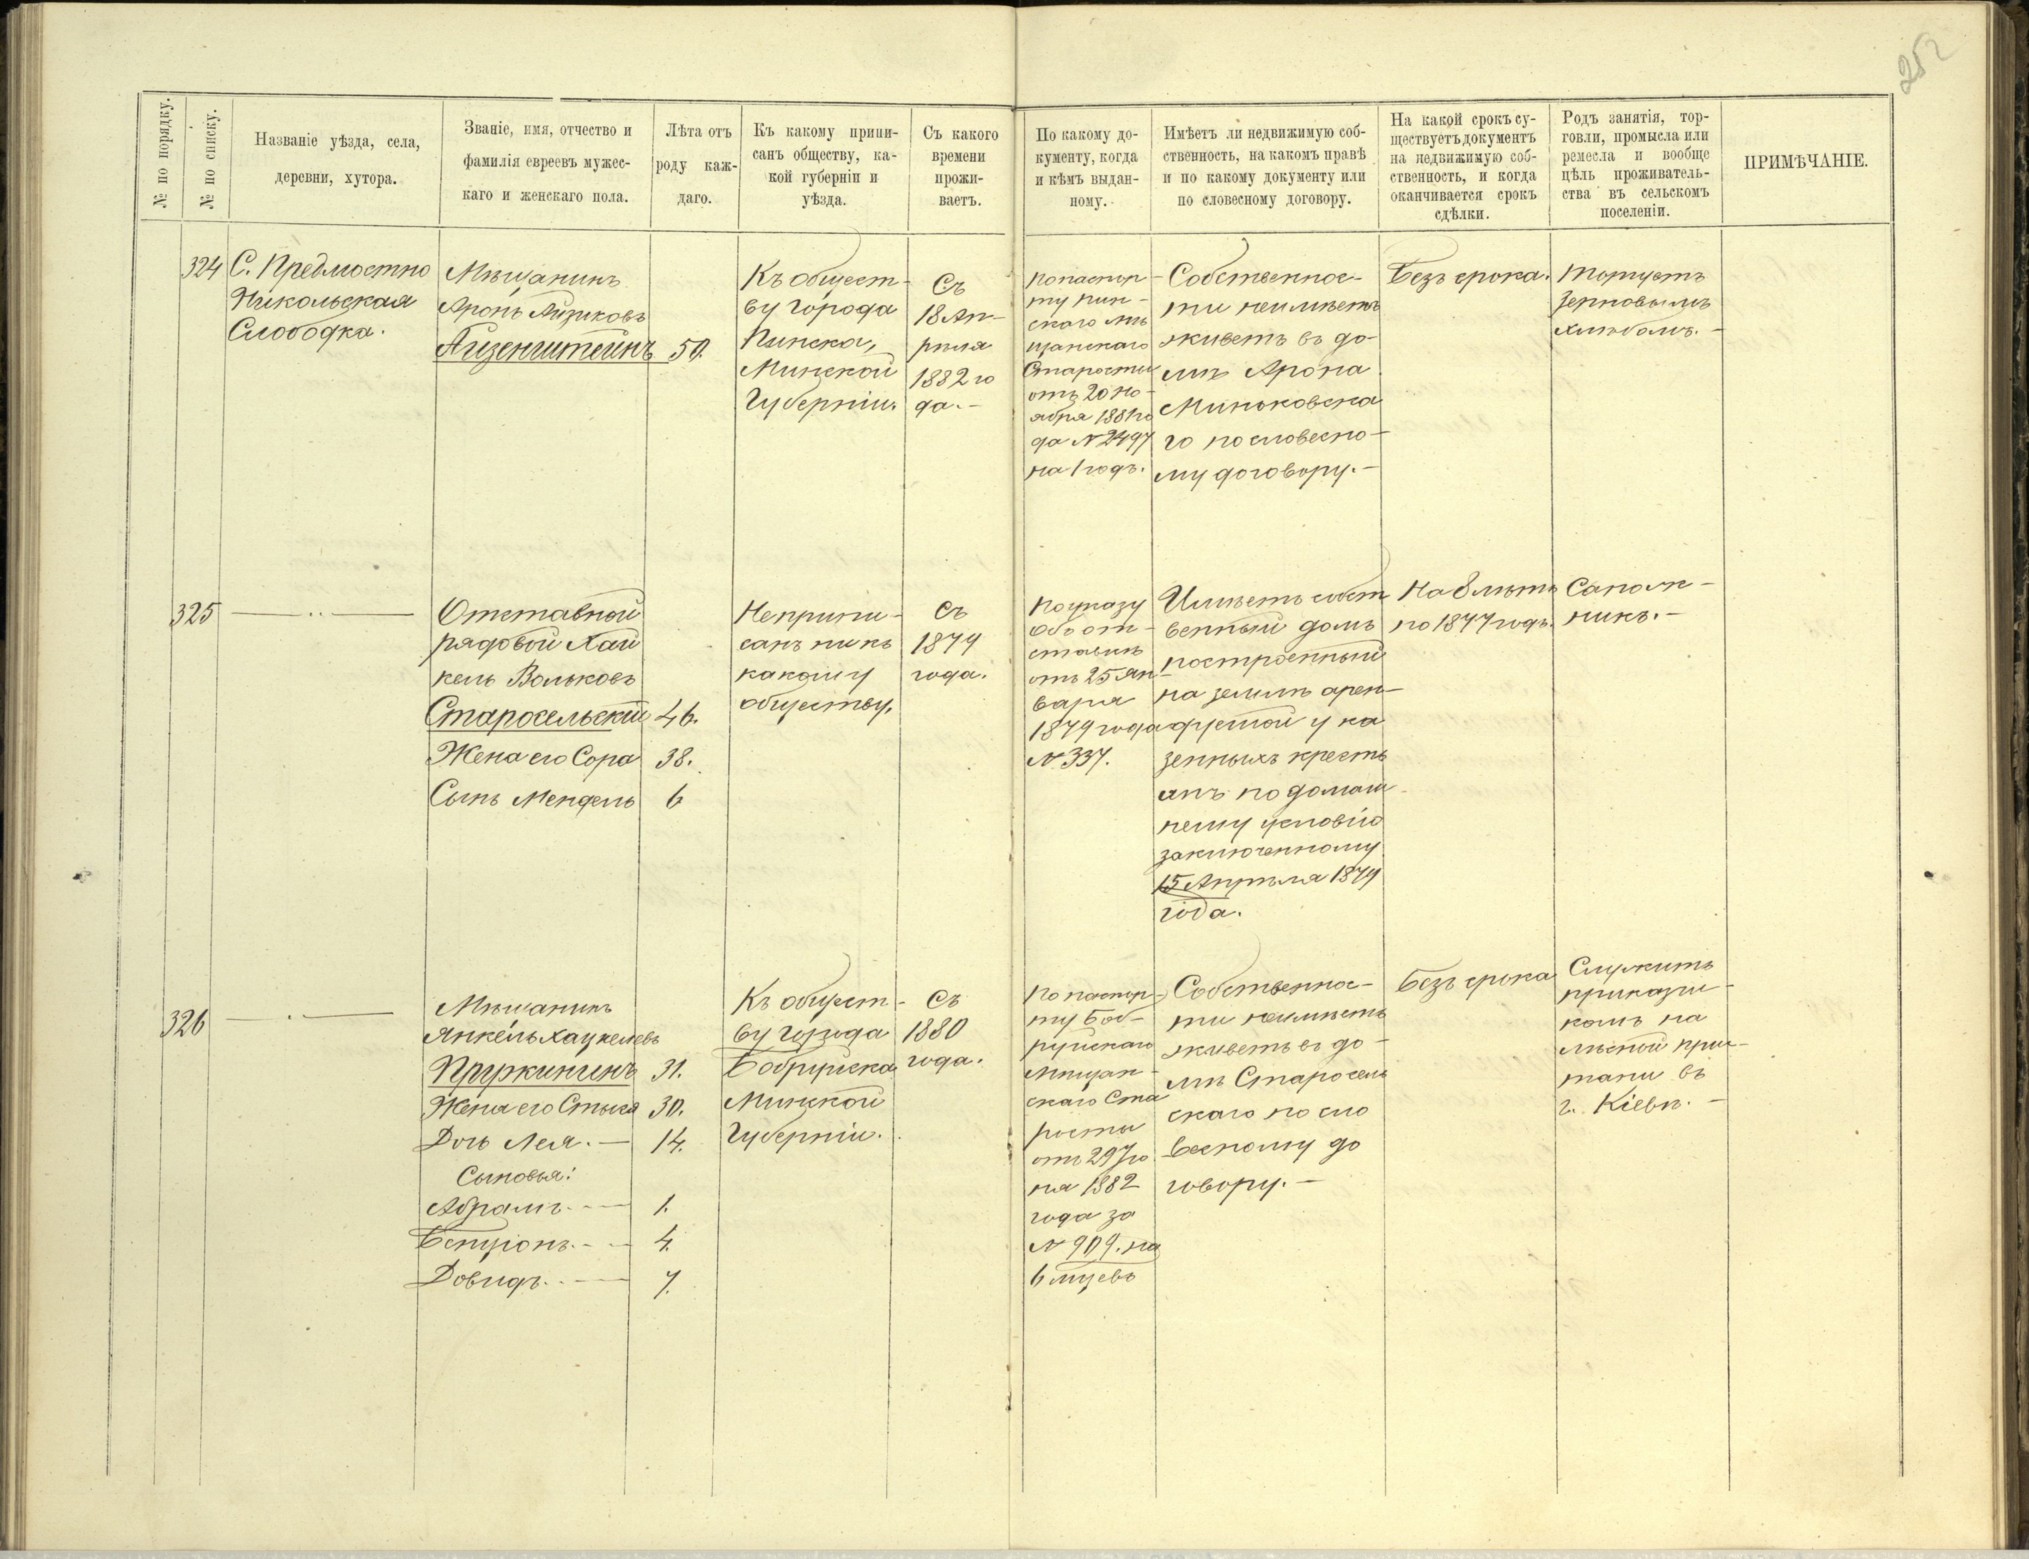 252
№ по порядку.
№ по списку.
Названіе уѣзда, села,
деревни, хутора.
Званіе, имя, отчество и
фамилія евреевъ мужес-
каго и женскаго пола.
Лѣта отъ
роду каж-
даго.
Къ какому припи-
санъ обществу, ка-
кой губерніи и
уѣзда.
Съ какого
времени
прожи-
ваетъ.
По какому до-
кументу, когда
и кѣмъ выдан-
ному.
Имѣетъ ли недвижимую соб-
ственность, на какомъ правѣ
и по какому документу или
по словесному договору.
На какой срокъ су-
ществуетъ документъ
на недвижимую соб-
ственность, и когда
оканчивается срокъ
сдѣлки.
Родъ занятія, тор-
говли, промысла или
ремесла и вообще
цѣль проживатель-
ства въ сельскомъ
поселеніи.
ПРИМѢЧАНІЕ.
324
С. Предмостно
Никольская
Слободка.
Мѣщанинъ
Аронъ Айзиковъ
Айзенштейнъ 50.
Къ общест-
ву города
Пинска,
Минской
Губерніи.
Съ
18 Ап-
рѣля
1882 го
да.-
По паспор-
ту Пин-
скаго мѣ
щанскаго
Старосты
отъ 20 но-
ября 1881 го
да № 2497
на 1 годъ.
Собственнос-
ти неимѣетъ
живетъ въ до-
мѣ Арона
Миньковска
го по словесно-
му договору.-
Безъ срока.
Торгуетъ
зерновымъ
хлѣбомъ.-
325
Отставной
рядовой Хай
кель Вольковъ
Старосельскій 46.
Жена его Сора 38.
Сынъ Мендель 6
Неприпи-
санъ ни къ
какому
обществу.
Съ
1879
года.
По указу
объ от-
ставкѣ
отъ 25 Ян-
варя
1879 года
№ 337.
Имѣетъ собст
венный домъ
построенный
на землѣ арен-
дуемой у ка
зенныхъ кресть
янъ по домаш
нему условію
заключенному
15 Апрѣля 1879
года.
На 8 лѣтъ
по 1877 годъ.
Сапож-
никъ.-
326
Мѣщанинъ
Янкель Хацкелевъ
Пружининъ 31.
Жена его Стыся 30.
Дочь Лея.- 14.
Сыновья:
Абрамъ.- 1.
Бенціонъ.- 4.
Довидъ.- 7.
Къ общест-
ву города
Бобруйска
Минской
Губерніи.
Съ
1880
года.
По паспор-
ту Боб-
руйскаго
Мѣщан-
скаго Ста
росты
отъ 29 Ію
ня 1882
года за
№ 909. на
6 мѣцевъ
Собственнос-
ти неимѣетъ
живетъ въ до-
мѣ Старосель
скаго по сло
весному до
говору.-
Безъ срока
Служитъ
приказчи-
комъ на
лѣсной прис-
тани въ
г. Кіевѣ.-